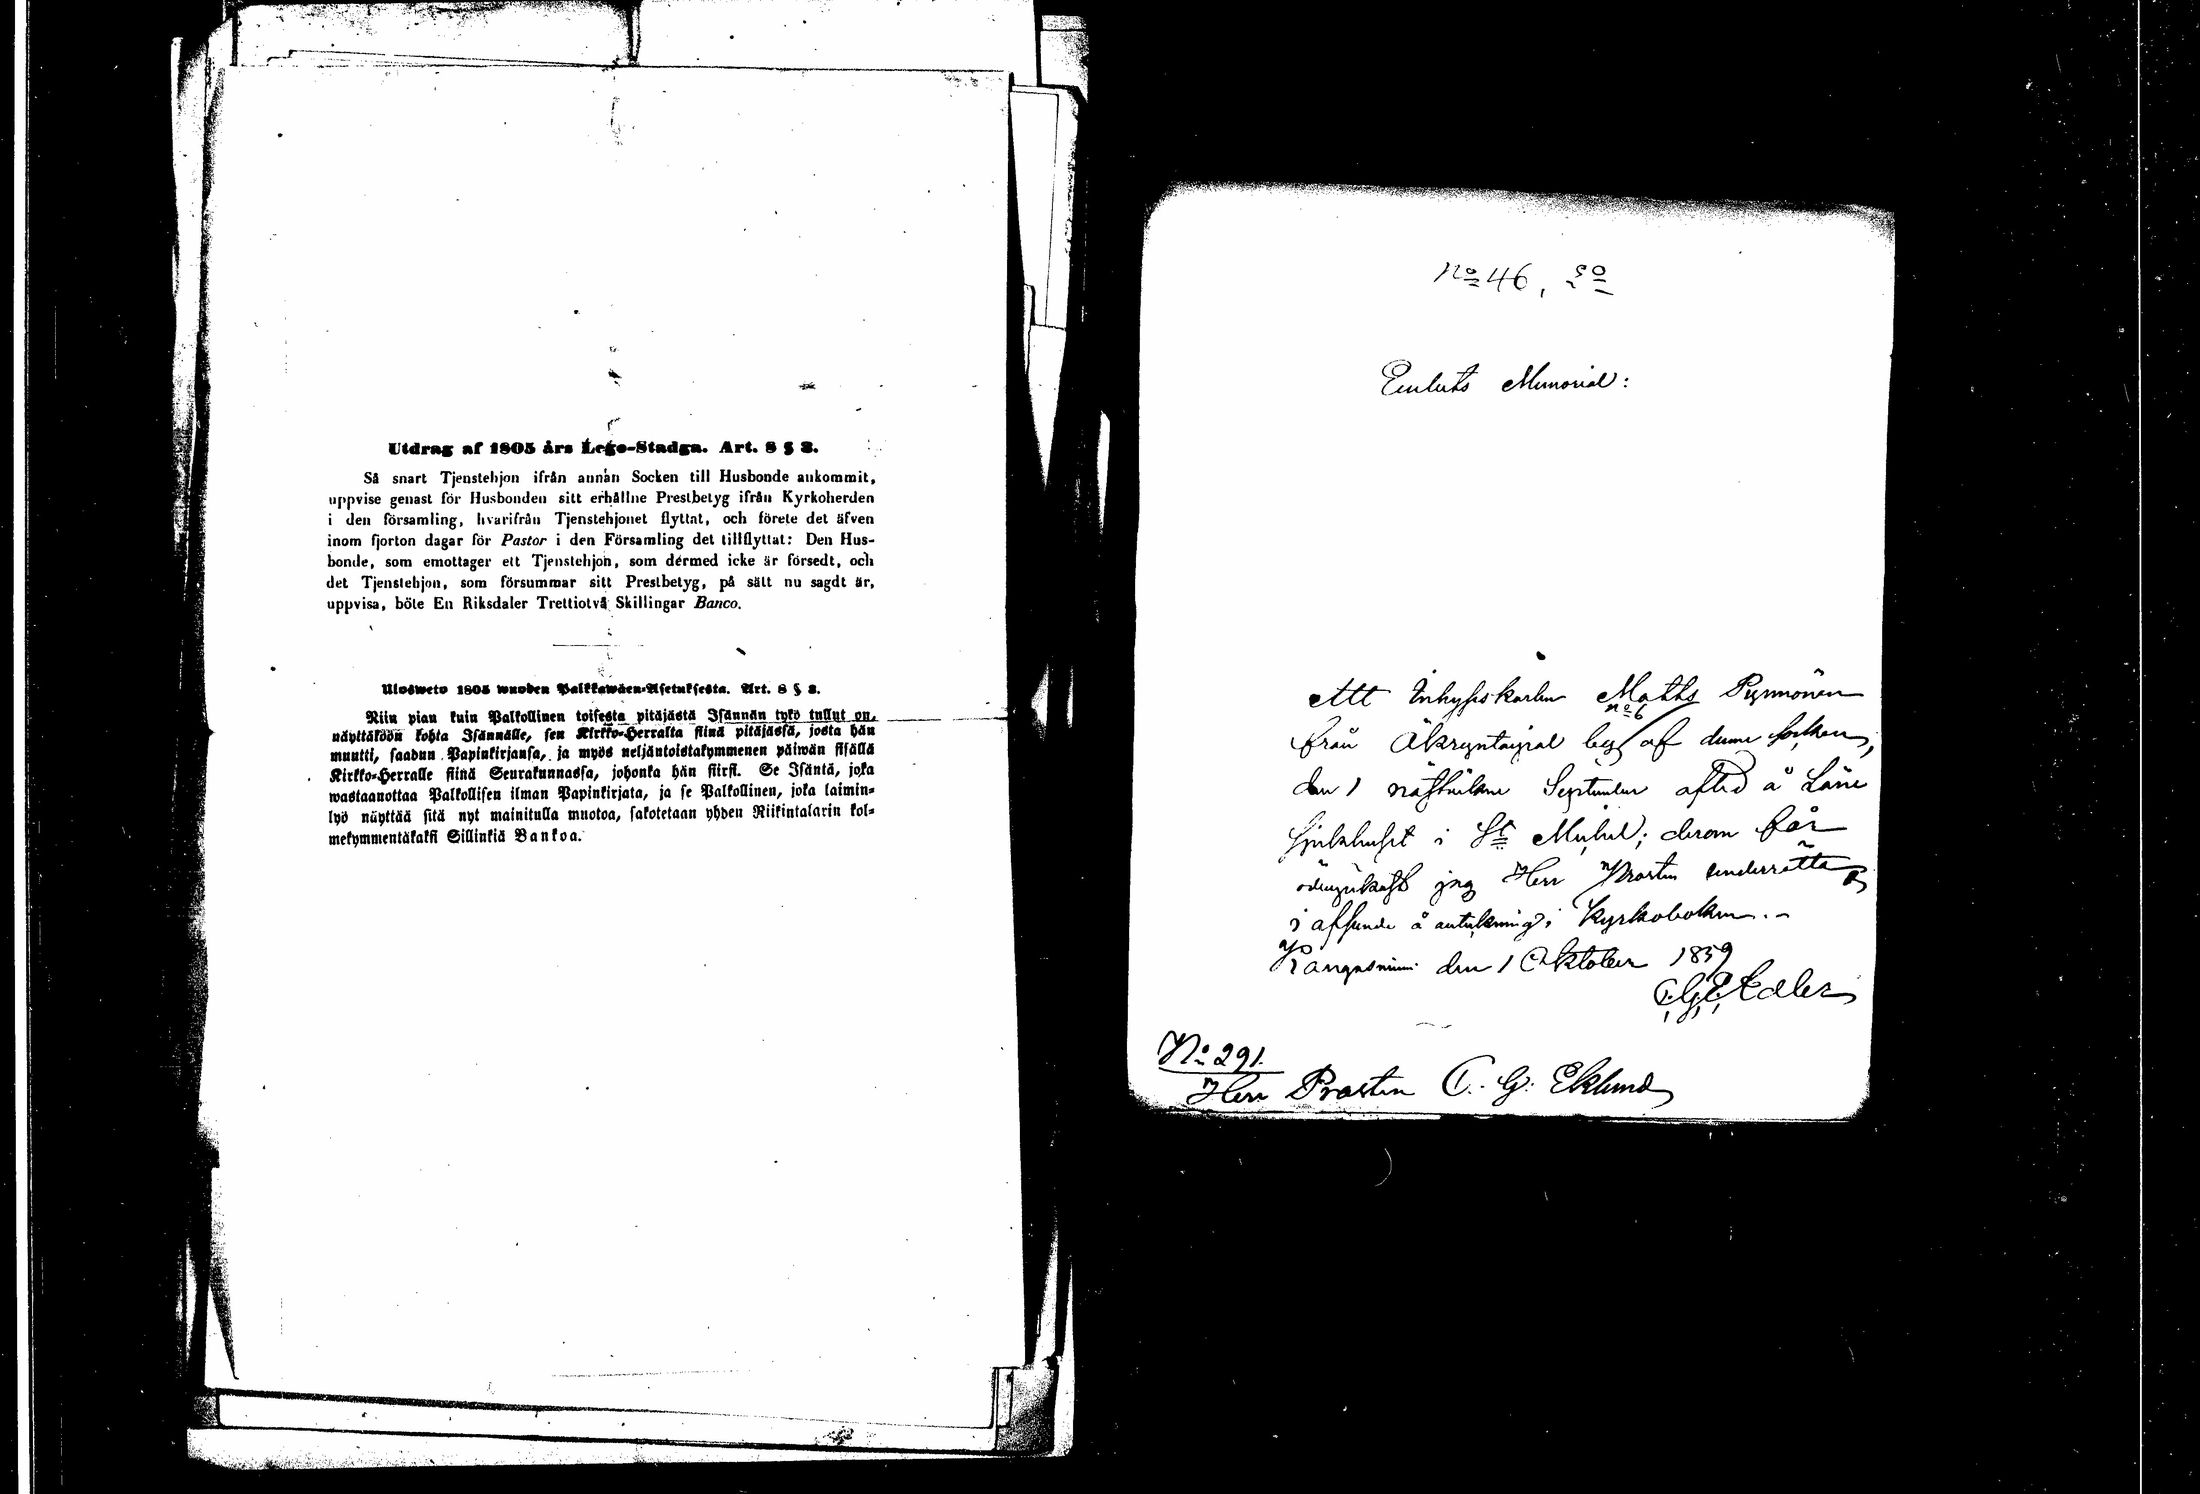 Utdrag af 1805 års Lego-Stadga. Art. 8 § 3.
Så snart Tjenstehjon ifrån annan Socken till Husbonde ankommit,
uppvise genast för Husbonden sitt erhållne Prestbetyg ifrån Kyrkoherden
i den församling, hvarifrån Tjenstehjonet flyttat, och förete det äfven
inom fjorton dagar för Pastor i den Församling det tillflyttat: Den Hus-
bonde, som emottager ett Tjenstehjon, som dermed icke är försedt, och
det Tjenstehjon, som försummar sitt Prestbetyg, på sätt nu sagdt är,
uppvisa, böte En Riksdaler Trettiotvå Skillingar Banco.
Ulosweto 1805 wuoden Palkkawäen-Asetuksesta. Art. 8 § 3.
Niin pian kuin Palkollinen toisesta pitäjästä Isännän tykö tullut on,
näyttäköön kohta Isännälle, sen Kirkko-Herralta siinä pitäjässä, josta hän
muutti, saadun Papinkirjansa, ja myös neljäntoistakymmenen päiwän sisällä
Kirkko-Herralle siinä Seurakunnassa, johonka hän siirsi. Se Isäntä, joka
wastaanottaa Palkollisen ilman Papinkirjata, ja se Palkollinen, joka laimin-
lyö näyttää sitä nyt mainitulla muotoa, sakotetaan yhden Riikintalarin kol-
mekymmentäkaksi Sillinkiä Bankoa.
No 46,
Memorial:
Att Inhysskarlen Matts Pynnönen
no 6
från by af denne socken,
den 1 September afled å Läne
sjukhuset i St Michel; derom får
ödmjukast jag Herr Prosten underrätta
i afseende å anteckning i Kyrkoboken.-
Kangasniemi den 1 Oktober 1859
Edler
No 291.
Herr Prosten C. G. Eklund